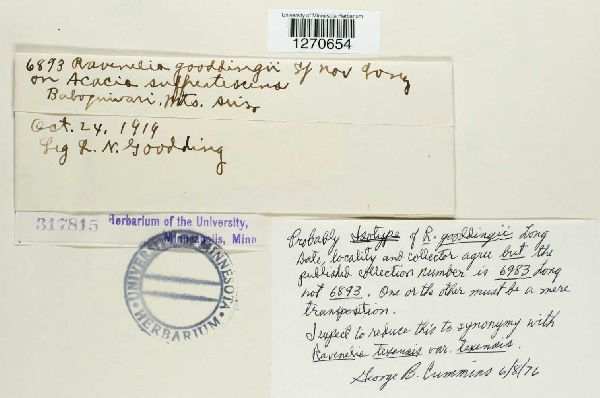 University of Minnesota Herbarium
1270654
6893 Ravenelia gooddingii sp nov Long
on Acacia suffrutescens
Baboquivari. Mts. Ariz
Oct. 24, 1919
Leg L. N. Goodding
317815
Herbarium of the University,
Minneapolis, Minn
UNIVERSITY OF MINNESOTA
HERBARIUM
Probably Isotype of R. gooddingii Long
Date, locality and collector agree but the
published collection number is 6983 Long
not 6893. One or the other must be a mere
transposition.
I expect to reduce this to synonymy with
Ravenelia texensis var. texensis.
George B. Cummins 6/8/76